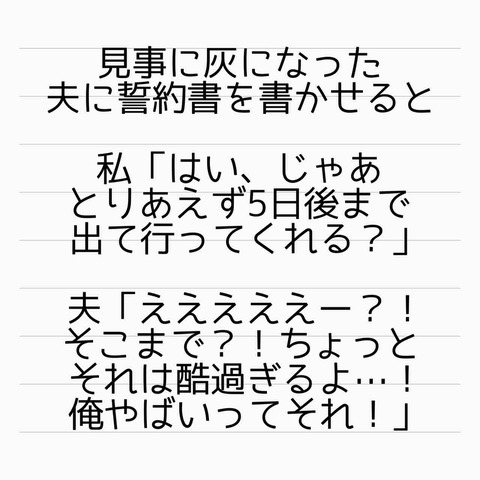 見事に灰になった
夫に誓約書を書かせると
私「はい、じゃあ
とりあえず5日後まで
出て行ってくれる？」
夫「えええええー？！
そこまで？！ちょっと
それは酷過ぎるよ…！
俺やばいってそれ！」